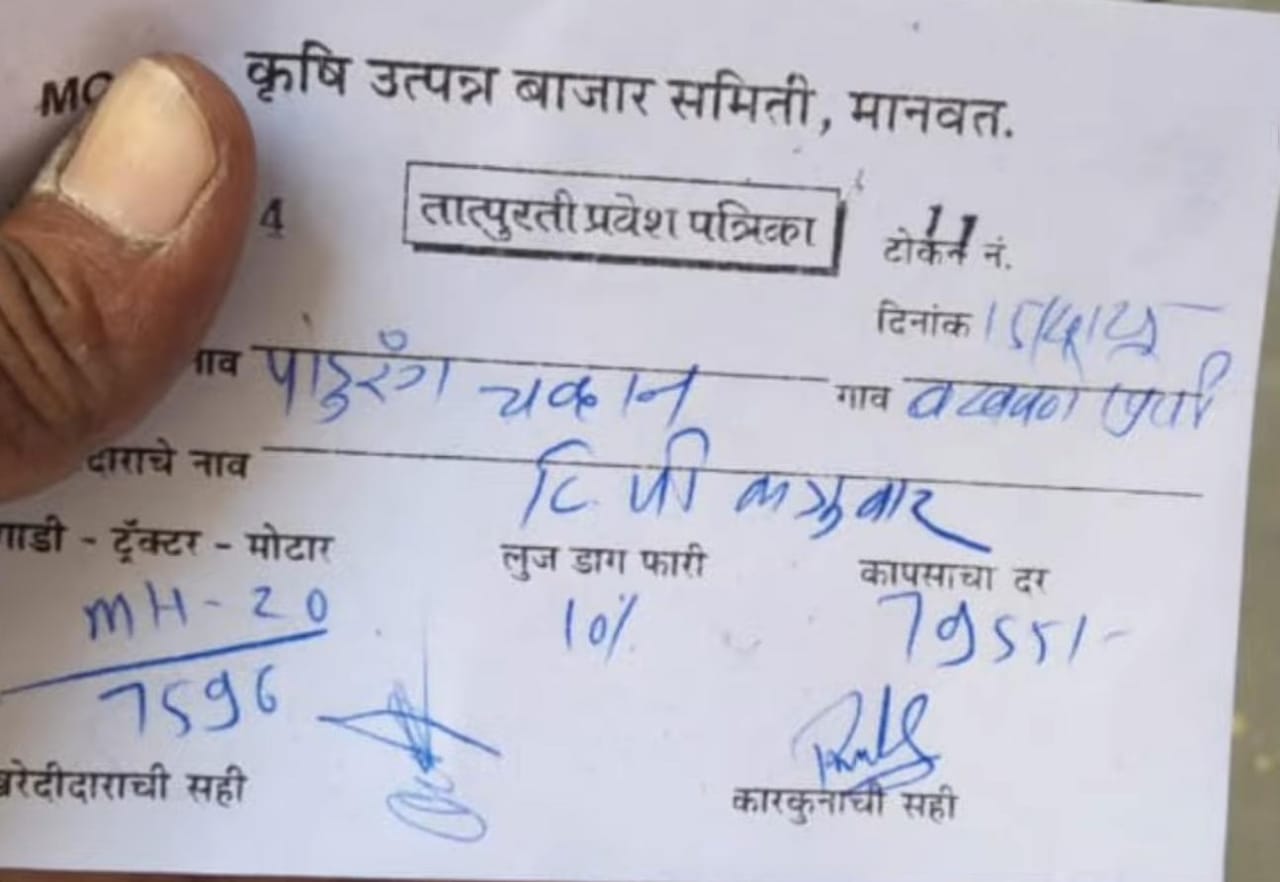 कृषि उत्पन्न बाजार समिती, मानवत.
4
तात्पुरती प्रवेश पत्रिका
11
टोकन नं.
दिनांक 15/4/25
नाव पांडुरंग चव्हाण गाव
दाराचे नाव
टि. पी.
गाडी - ट्रॅक्टर - मोटार लुज डाग फारी कापसाचा दर
MH-20 10% 7955/-
7596
खरेदीदाराची सही कारकुनाची सही